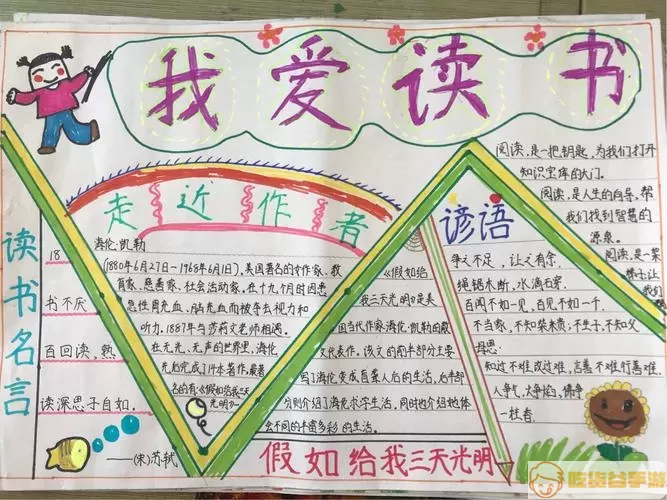 我爱读书
读书名言
18
书不厌
百回读,熟
读深思子自如。
——(宋)苏轼
走近作者
海伦·凯勒
(1880年6月27日-1968年6月1日),美国著名的女作家、教
育家、慈善家、社会活动家,在十九个月时因患
急性胃充血、脑充血而被夺去视力和
听力。1887年与苏莉文老师相遇。
在无光、无声的世界里,海伦
先后完成了14本著作。最著
名的有《假如给我三天
光明》
《假如给
我三天光明》是美
国当代作家海伦·凯勒的散
文代表作。该文的前半部分主要
写了海伦变成盲聋人后的生活,后半部
分则介绍了海伦求学生活,同时也介绍她体
会不同的丰富多彩的生活。
假如给我三天光明
谚语
争之不足,让之有余
绳锯木断,水滴石穿。
百闻不如一见,百见不如一干。
不当家,不知柴米贵;不生子,不知父
母恩。
知过不难改过难,言善不难行善难。
人争气,火争焰,佛争
一炷香。
阅读,是一把钥匙,为我们打开
知识宝库的大门。
阅读,是人生的向导,帮
我们找到智慧的
源泉。
阅读,是一架
梯子,让
我们
吃货谷手游